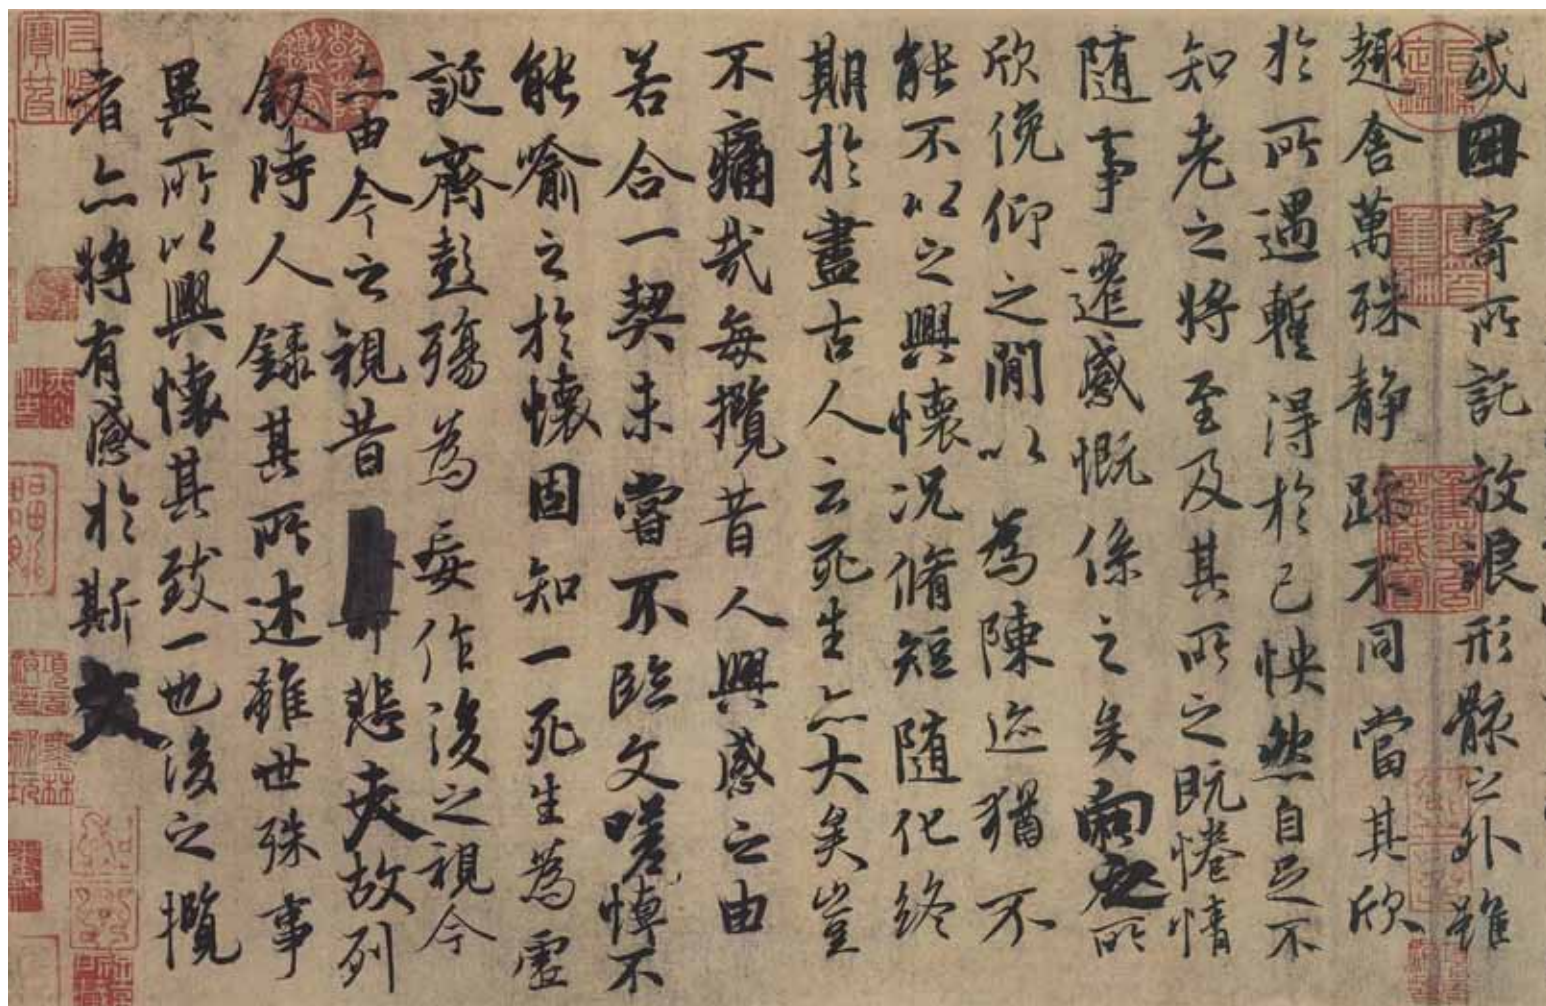 或因寄所託放浪形骸之外雖
趣舍萬殊静躁不同當其欣
於所遇暫得於己怏然自足不
知老之將至及其所之既惓情
隨事遷感慨係之矣向之所
欣俛仰之閒以為陳迹猶不
能不以之興懷況脩短隨化終
期於盡古人云死生亦大矣豈
不痛哉每攬昔人興感之由
若合一契未嘗不臨文嗟悼不
能喻之於懷固知一死生為虛
誕齊彭殤為妄作後之視今
亦由今之視昔悲夫故列
叙時人錄其所述雖世殊事
異所以興懷其致一也後之攬
者亦將有感於斯文